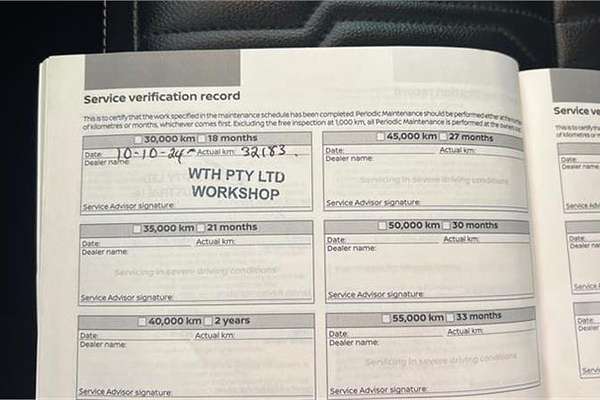 Service verification record
This is to certify that the work specified in the maintenance schedule has been completed. Periodic Maintenance should be performed either at the
of kilometres or months, whichever comes first. Excluding the free inspection at 1,000 km, all Periodic Maintenance is performed at the owner's
30,000 km 18 months
Date: 10-10-24 Actual km: 32183.
Dealer name:
WTH PTY LTD
WORKSHOP
Service Advisor signature:
45,000 km 27 months
Date: Actual km:
Dealer name:
Servicing in severe driving conditions
Service Advisor signature:
35,000 km 21 months
Date: Actual km:
Dealer name:
Servicing in severe driving conditions
Service Advisor signature:
50,000 km 30 months
Date: Actual km:
Dealer name:
Service Advisor signature:
40,000 km 2 years
Date: Actual km:
Dealer name:
Service Advisor signature:
55,000 km 33 months
Date: Actual km:
Dealer name:
Servicing in severe driving conditions
Service Advisor signature:
Service ve
This is to certify
of kilometres or
Date:
Dealer name
Date:
Dealer
Date:
Dealer